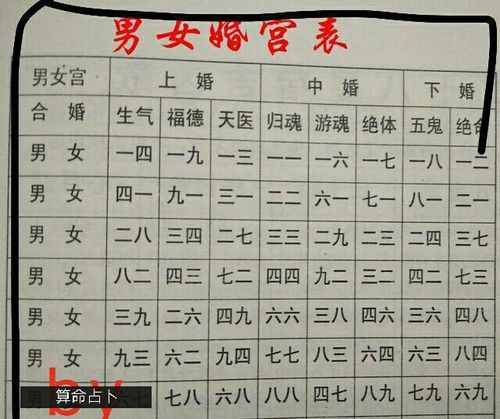 男女婚宫表
男女宫 上婚 中婚 下婚
合婚 生气 福德 天医 归魂 游魂 绝体 五鬼 绝命
男 女 一四 一九 一三 一一 一六 一七 一八 一二
男 女 四一 九一 三一 二二 六一 七一 八一 二一
男 女 二八 三四 二七 三三 二九 二三 二四 三七
男 女 八二 四三 七二 四四 九二 三二 四二 七三
男 女 三九 二六 四九 六六 三八 四六 三六 四八
男 女 九三 六二 九四 七七 八三 六四 六三 八四
男 七八 六八 八八 四七 八九 七九 六九
by
算命占卜